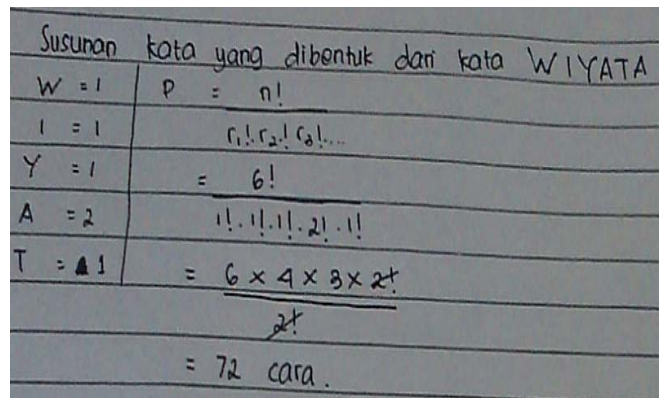 Susunan kata yang dibentuk dari kata WIYATA
W = 1
I = 1
Y = 1
A = 2
T = 1
P = n!
r₁! r₂! r₃!...
= 6!
1! . 1! . 1! . 2! . 1!
= 6 × 4 × 3 × 2!
2!
= 72 cara.